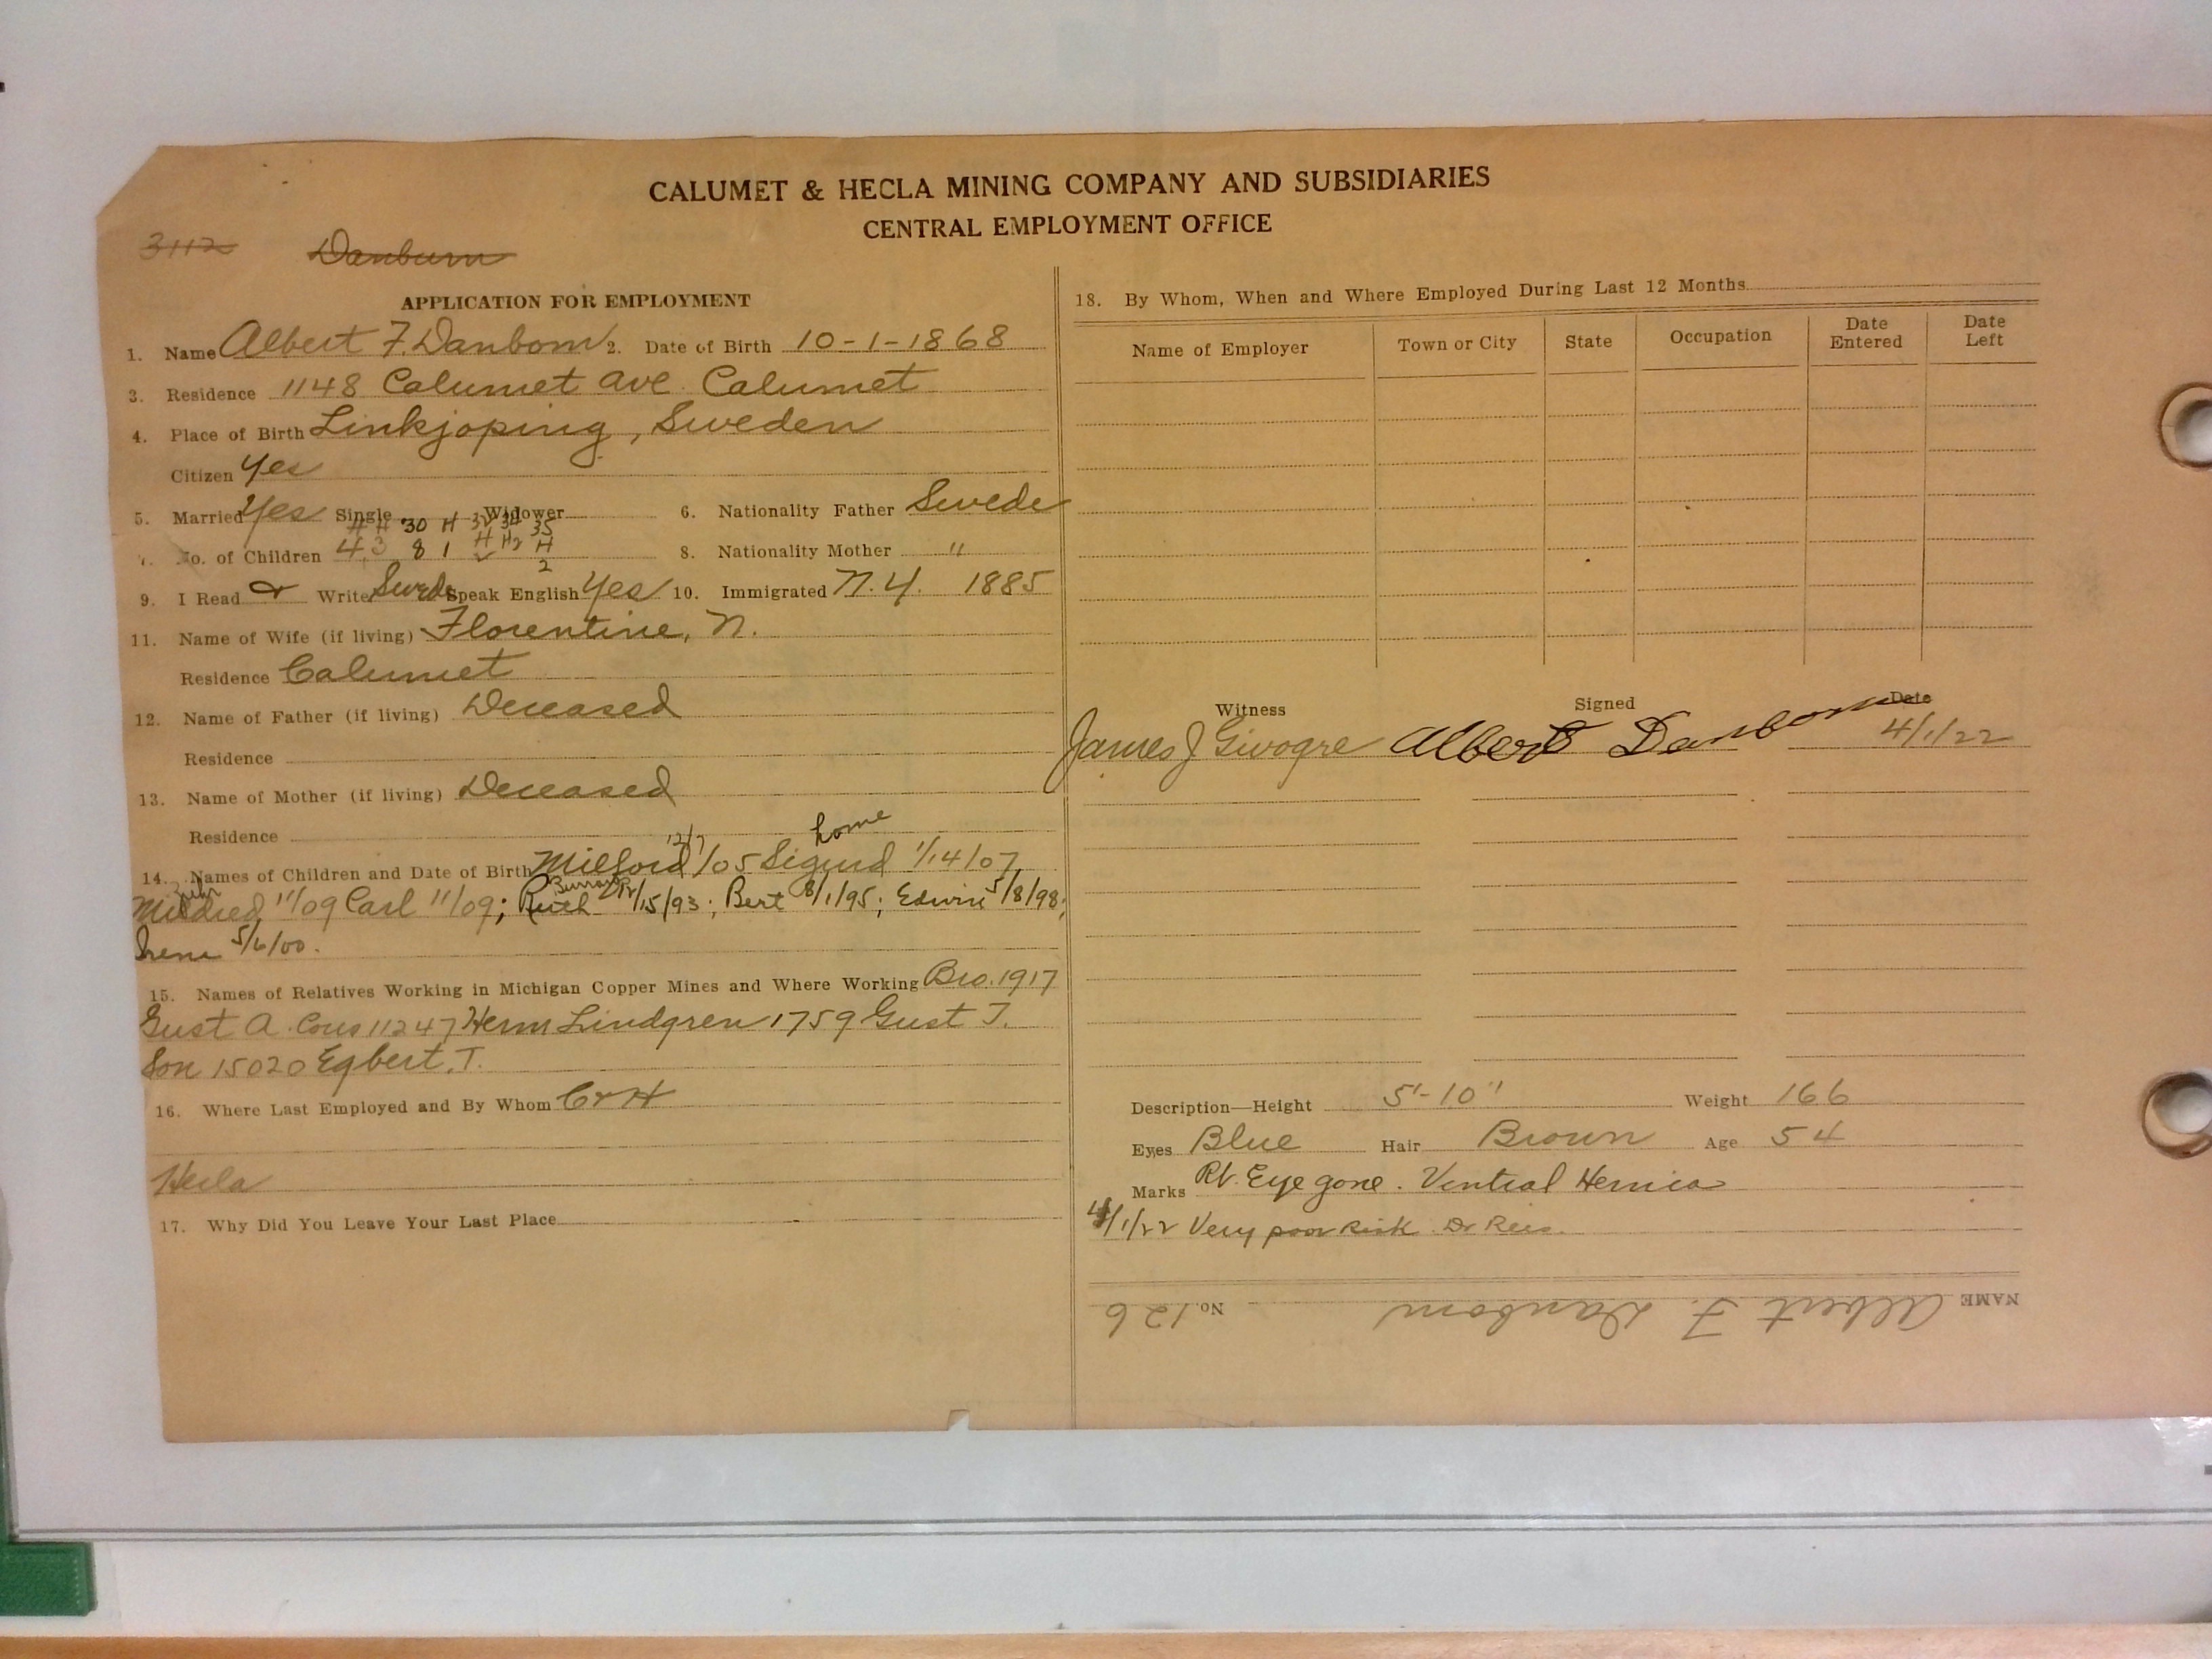 CALUMET & HECLA MINING COMPANY AND SUBSIDIARIES
CENTRAL EMPLOYMENT OFFICE
3112 Danburn
APPLICATION FOR EMPLOYMENT
1. Name Albert F. Danbom 2. Date of Birth 10-1-1868
3. Residence 1148 Calumet Ave. Calumet
4. Place of Birth Linkjoping, Sweden
Citizen Yes
5. Married Yes Single Widower 6. Nationality Father Swede
No. of Children 4 3 8 1 8. Nationality Mother "
9. I Read & Write Swede Speak English Yes 10. Immigrated N.Y. 1885
11. Name of Wife (if living) Florentine, N.
Residence Calumet
12. Name of Father (if living) Deceased
Residence
13. Name of Mother (if living) Deceased
Residence
home
14. Names of Children and Date of Birth Milford 12/7/05 Sigurd 1/14/07
Mildred 11/09 Carl 11/09; Ruth 12/15/93; Bert 8/1/95; Edwin 5/8/98;
Irene 5/6/00.
15. Names of Relatives Working in Michigan Copper Mines and Where Working Bro. 1917
Gust A. Cous 11247 Herm Lindgren 1759 Gust T.
Son 15020 Egbert. T.
16. Where Last Employed and By Whom C & H
Hecla
17. Why Did You Leave Your Last Place
18. By Whom, When and Where Employed During Last 12 Months
Name of Employer Town or City State Occupation Date Entered Date Left
Witness Signed Date
James J Givogre Albert Danbom 4/1/22
Description—Height 5'-10" Weight 166
Eyes Blue Hair Brown Age 54
Marks Rt. Eye gone. Ventral Hernia
4/1/22 Very poor Risk Dr Rees.
NAME Albert F. Danbom No. 126